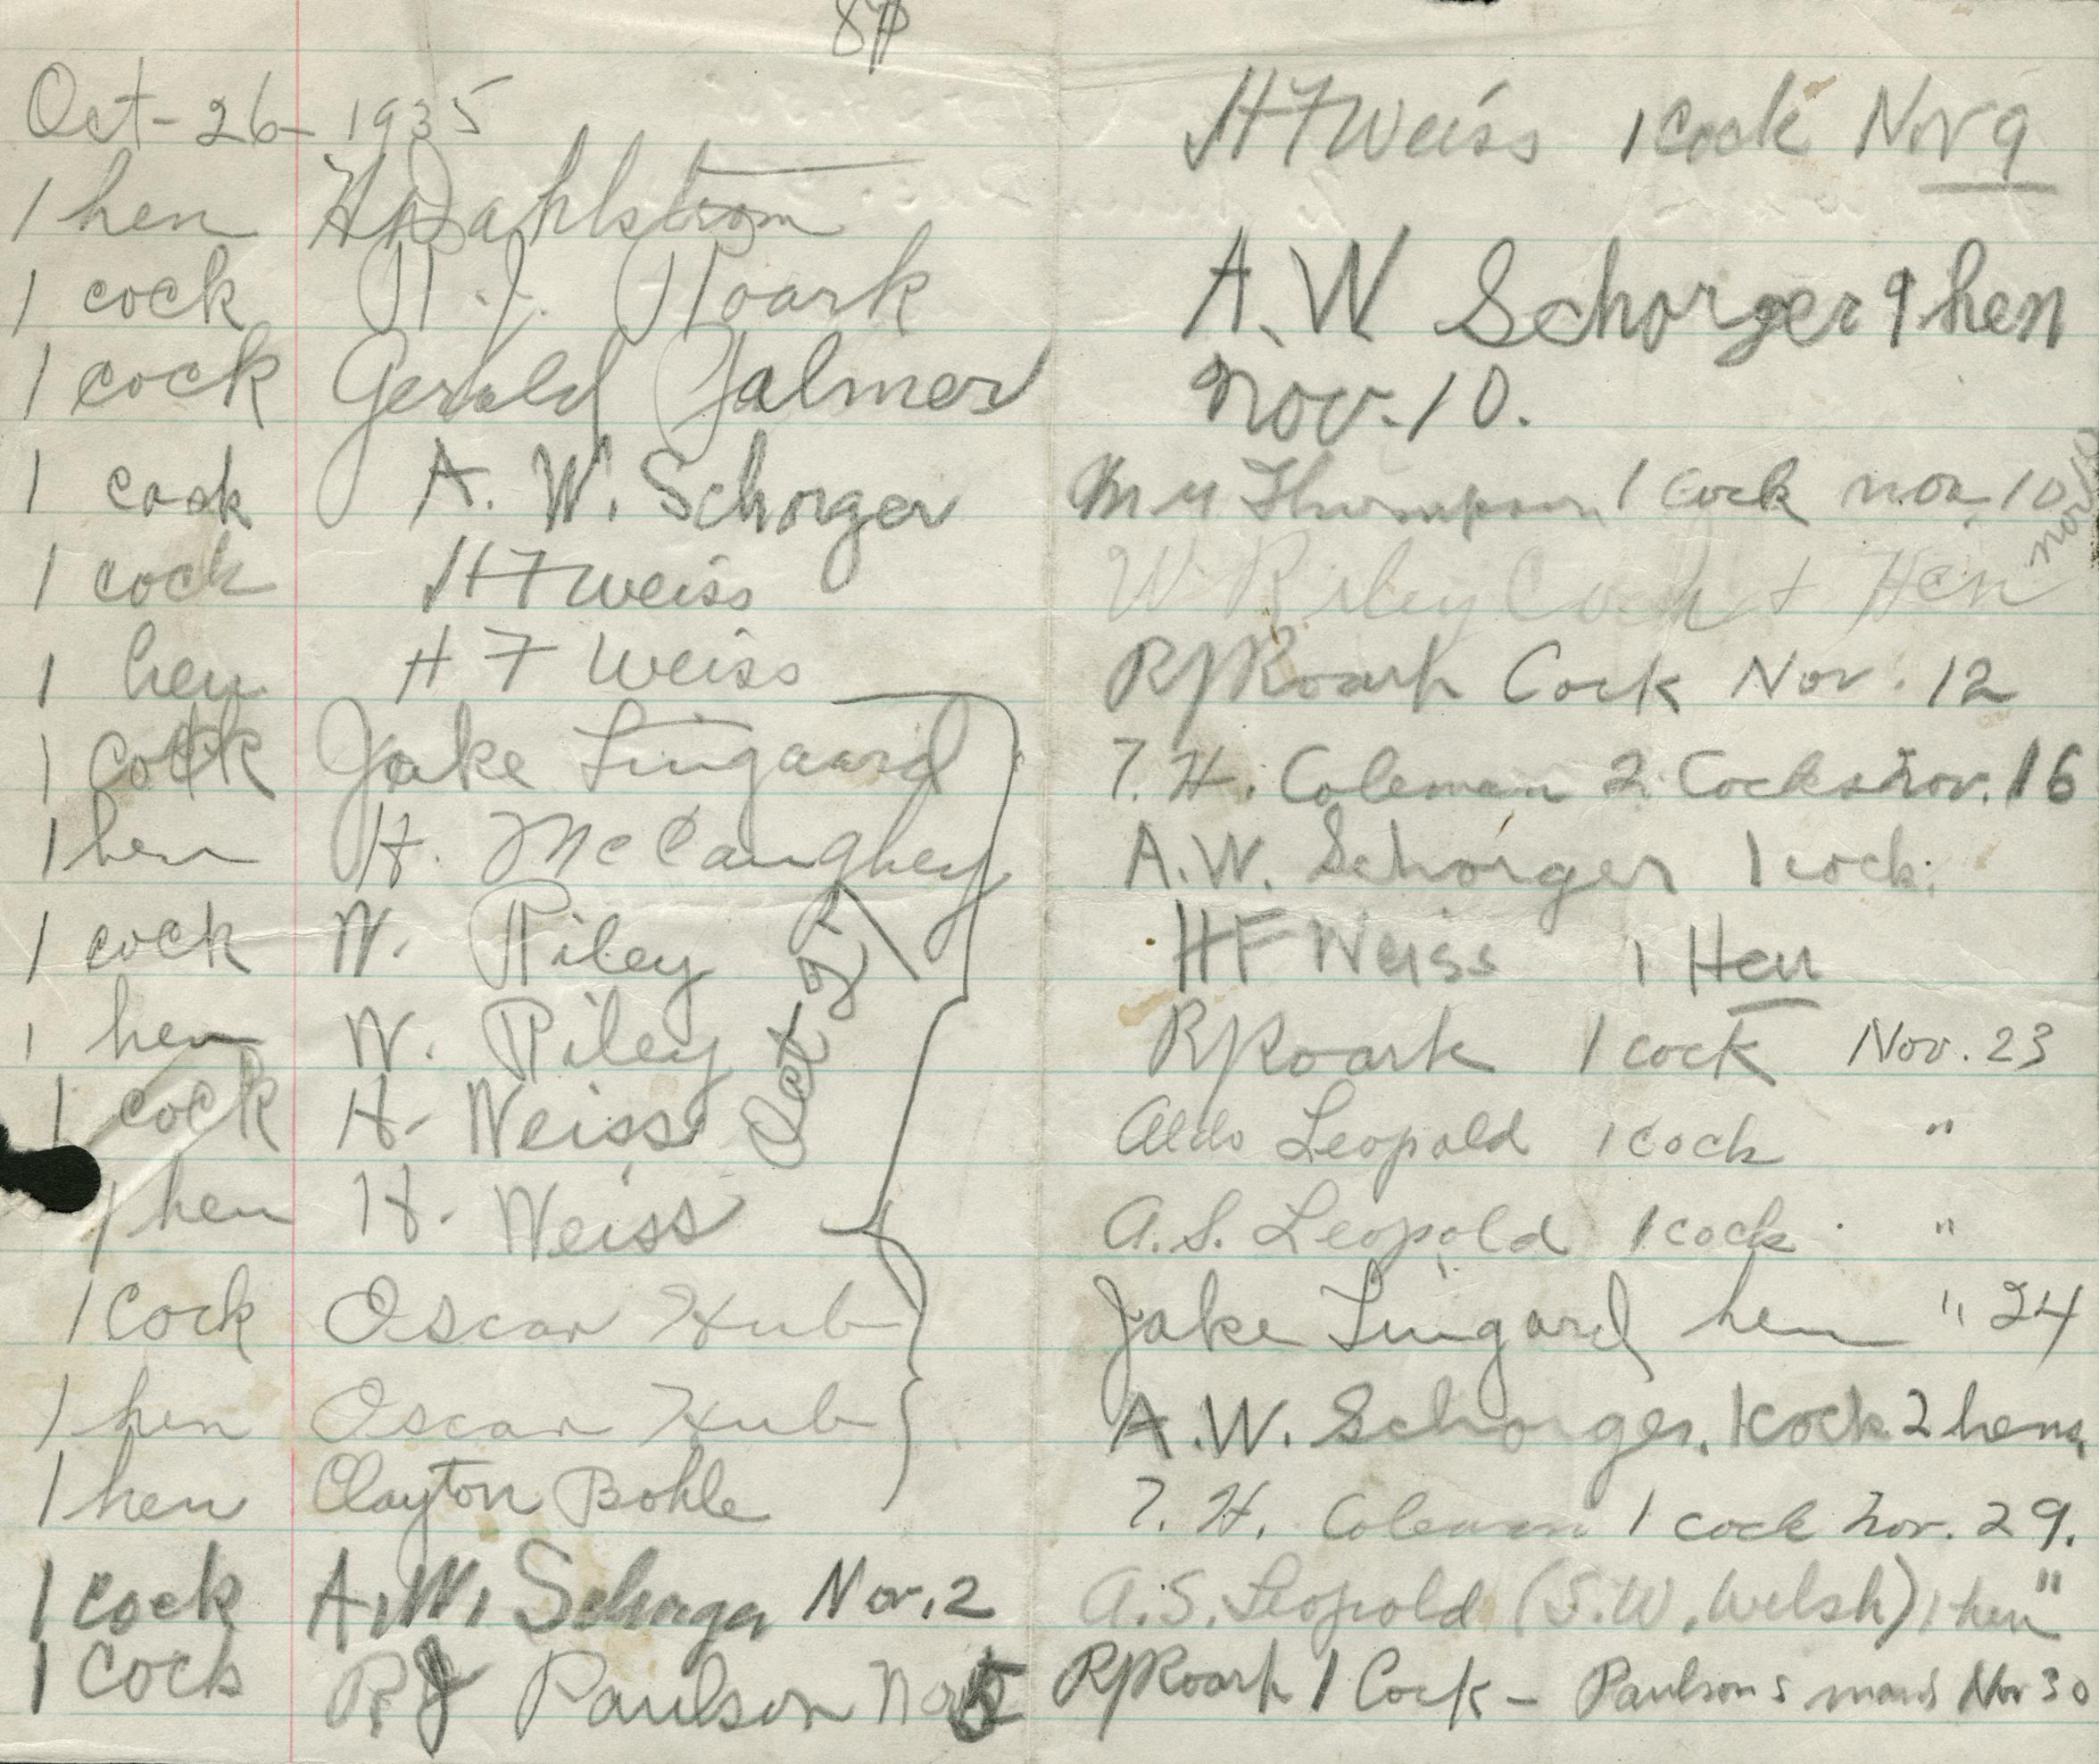 Oct-26-1935
1 hen H Dahlstrom
1 cock R.J. Roark
1 cock Gerald Palmer
1 cock A. W. Schorger
1 cock HF Weiss
1 hen H F Weiss
1 cock Jake Lingaard
1 hen H. McCaughey
1 cock W. Riley
1 hen W. Riley
1 cock H. Weiss
1 hen H. Weiss
Oct 27
1 Cock Oscar Hub
1 hen Oscar Hub
1 hen Clayton Bohle
1 cock A.W. Schorger Nov. 2
1 Cock RJ Paulson Nov 5
HF Weiss 1 cock Nov 9
A. W Schorger 1 hen
Nov. 10.
Thompson 1 Cock nov 10
W Riley Cock + Hen nov 10
RJ Roark Cock Nov. 12
T. H. Coleman 2 Cocks nov. 16
A. W. Schorger 1 cock.
HF Weiss 1 Hen
RJ Roark 1 cock Nov. 23
Aldo Leopold 1 cock "
A. S. Leopold 1 cock "
Jake Lingard hen " 24
A. W. Schorger. 1 cock 2 hens
T. H. Coleman 1 cock nov. 29.
A. S. Leopold (S.W. Welsh) 1 hen "
RJ Roark 1 Cock - Paulsons Nov 30